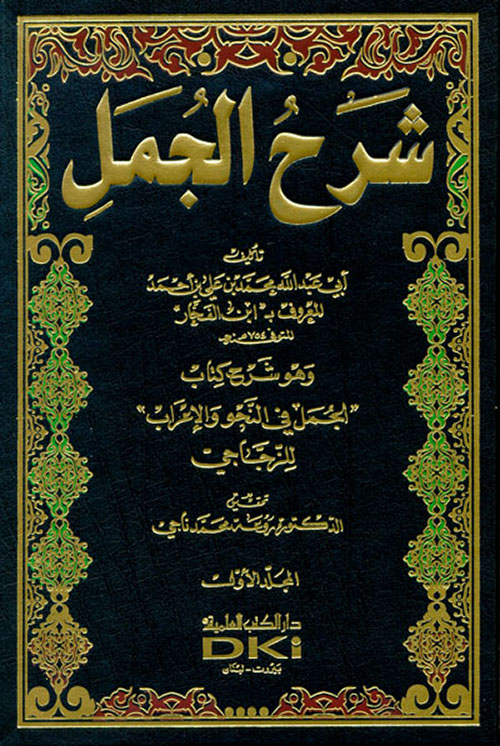 شَرْحُ الجُمَلِ
تأليف
أبي عبد الله محمد بن علي بن أحمد
المعروف بـ "ابن الفخّار"
المتوفى ٧٥٤ هـ
وهو شرح كتاب
"الجمل في النحو والإعراب"
للزجاجي
تحقيق
الدكتورة روعة محمد ناجي
المجلد الأول
دار الكتب العلمية
DKi
بيروت - لبنان